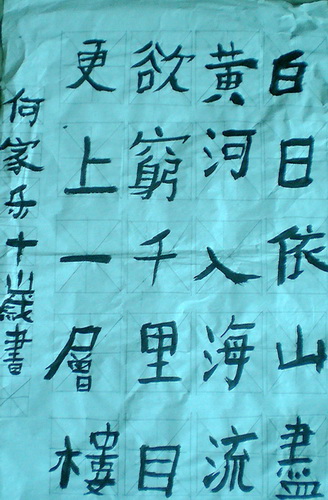 白日依山盡
黃河入海流
欲窮千里目
更上一層樓
何家乐十歲書